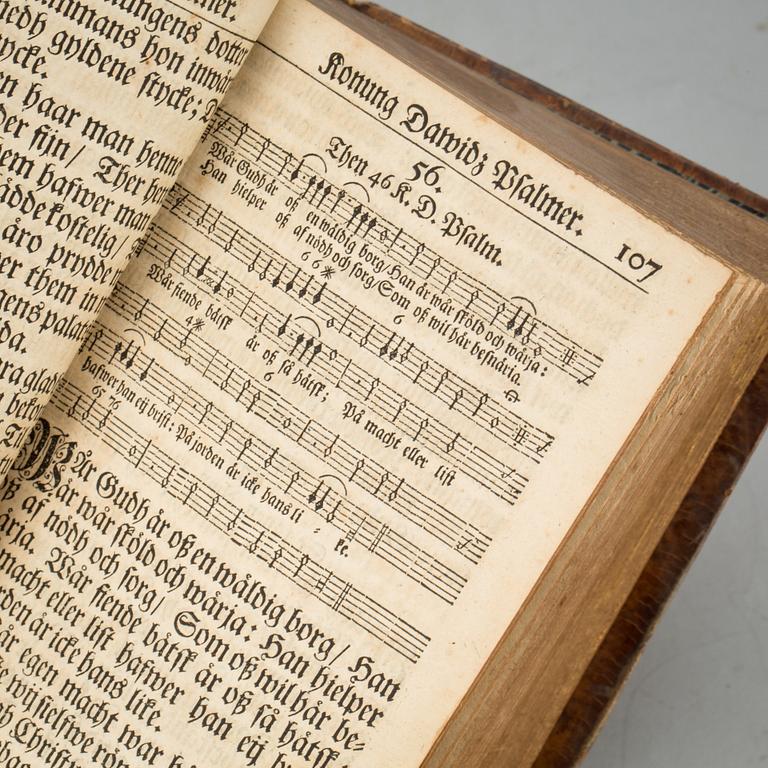 ungens dotter
mmans hon
medh gyldene stycke;
ycke.
haar man henne
der fijn/ Ther
hafwer man
kostelig/
äro prydde
them in
gens palat
da.
Konung Dawidz Psalmer. 107
56.
Then 46 K. D. Psalm.
Wår Gudh är oß en wäldig borg/ Han är wår sköld och wärja:
Han hielper oß af nödh och sorg/ Som oß wil här beskäria.
6 6 * 6
Wår fiende bätsk är oß så hätsk; På macht eller list
4 * 6
hafwer han eij brist: På jorden är icke hans li - ke.
65 76
WÅr Gudh är oß en wäldig borg/ Han
är wår sköld och wärja: Han hielper
oß af nödh och sorg/ Som oß wil här be-
äria. Wår fiende bätsk är oß så hätsk
macht eller list hafwer han eij
rden är icke hans like.
är egen macht war
wijstelswe
Christ